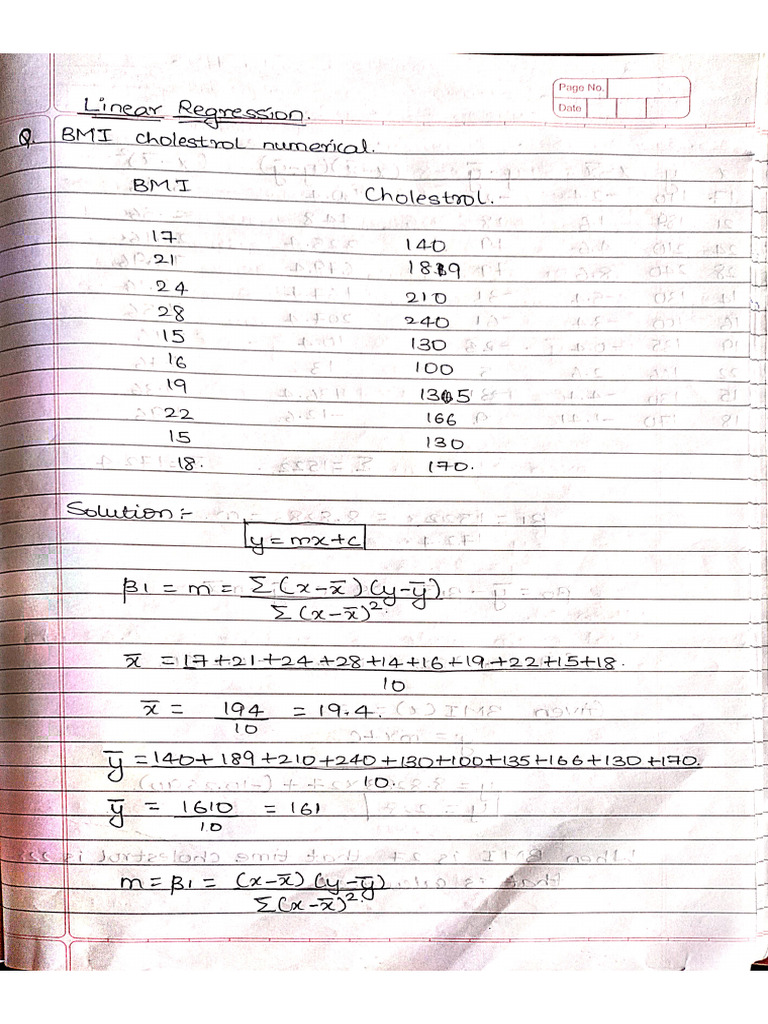 Page No.
Date
Linear Regression.
Q. BMI cholestrol numerical.
BMI Cholestrol.
17 140
21 189
24 210
28 240
15 130
16 100
19 135
22 166
15 130
18. 170.
Solution:-
y = mx+c
β1 = m = Σ(x-x̄)(y-ȳ)
Σ(x-x̄)²
x̄ = 17+21+24+28+14+16+19+22+15+18.
10
x̄ = 194 = 19.4.
10
ȳ = 140+189+210+240+130+100+135+166+130+170.
10.
ȳ = 1610 = 161
10
m = β1 = (x-x̄)(y-ȳ)
Σ(x-x̄)²